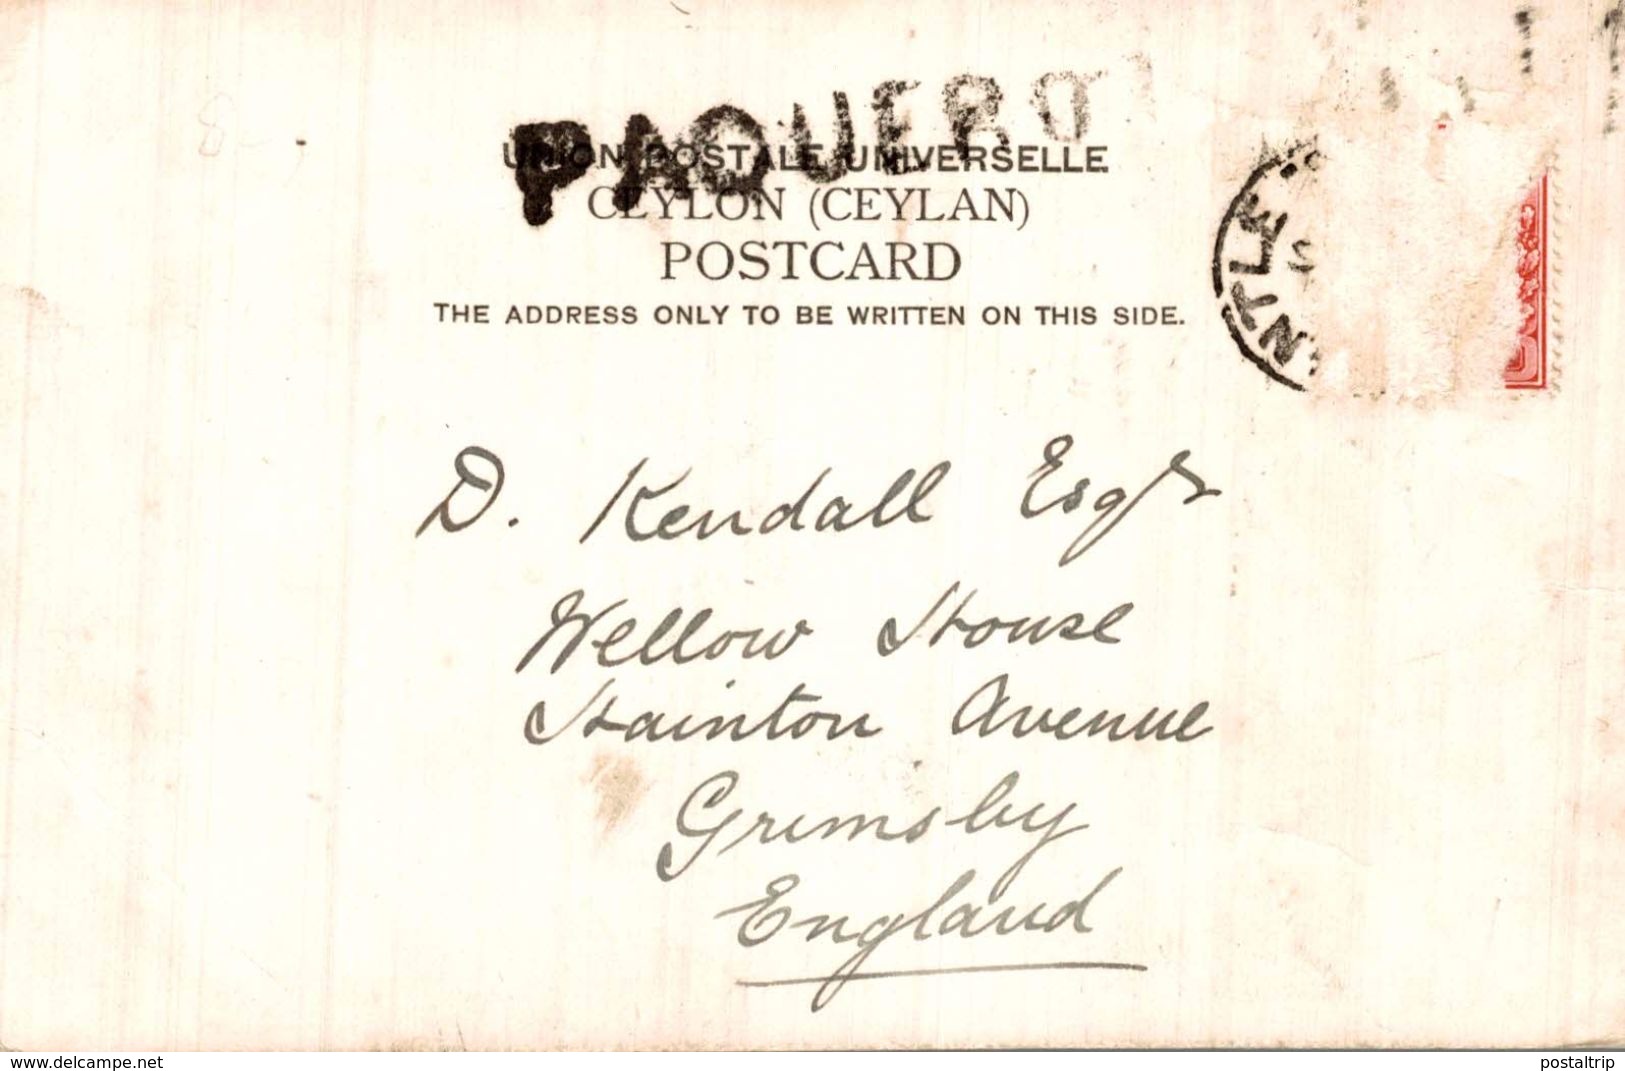 PAQUEBOT
UNION POSTALE UNIVERSELLE
CEYLON (CEYLAN)
POSTCARD
THE ADDRESS ONLY TO BE WRITTEN ON THIS SIDE.
NTLE
D. Kendall Esqr
Wellow House
Stainton Avenue
Grimsby
England
www.delcampe.net
postaltrip